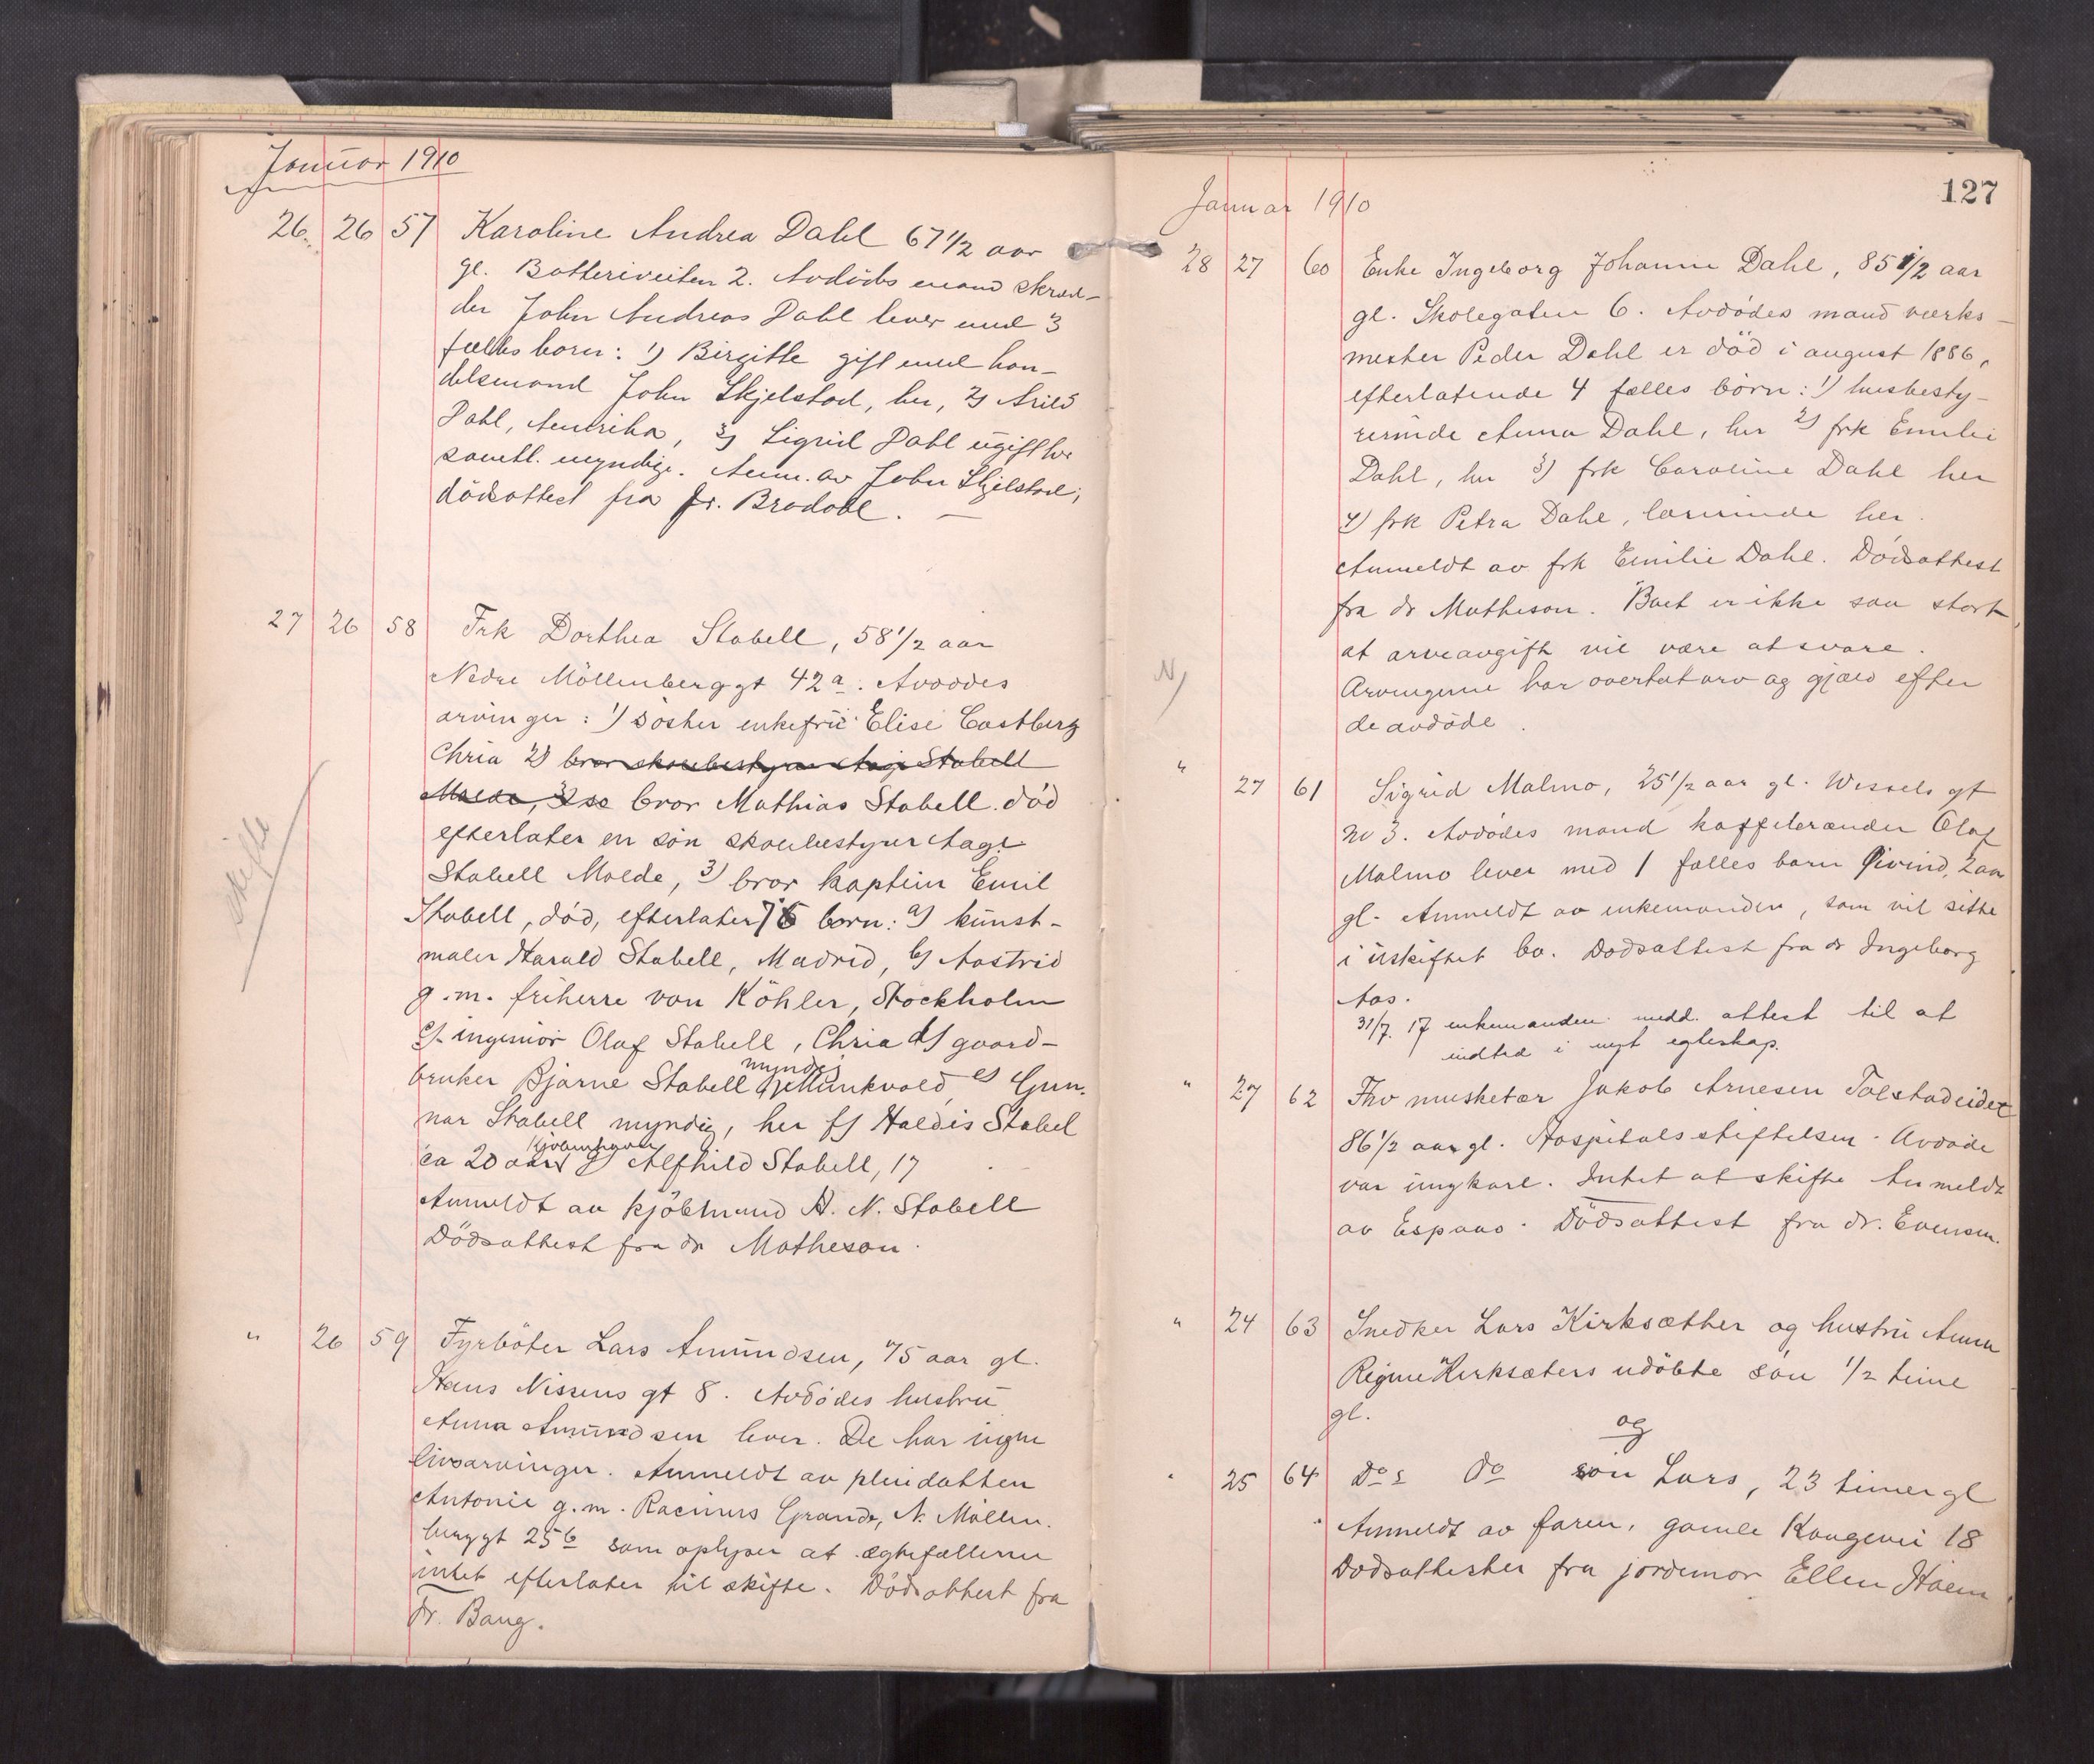 Januar 1910
26. 26 57 Karoline Andrea Dahl 67 1/2 aar
gl. Batteriveiten 2. Avdödes mand skræd-
der John Andreas Dahl lever med 3
fælles børn: 1) Birgitte gift med han-
delsmand John Skjelstad, her, 2) Arild
Dahl, Amerika, 3) Sigrid Dahl ugift her
samtl. myndige. Anm. av John Skjelstad;
dödsattest fra dr. Brodahl. —
27 26 58 Frk Dorthea Stabell, 58 1/2 aar
Nedre Möllenberggt 42a. Avdödes
arvinger: 1) söster enkefru Elise Castberg
Chria 2) bror skovbestyrer Aage Stabell
Molde, 3) se bror Mathias Stabell død
efterlater en søn skovbestyrer Aage
Stabell Molde, 3) bror kaptein Emil
Stabell, død, efterlater 7 børn: a) kunst-
maler Harald Stabell, Madrid, b) Aastrid
g.m. friherre von Köhler, Stockholm
c) ingeniør Olaf Stabell, Chria d) gaard-
myndig
bruker Bjarne Stabell, Munkvold, e) Gun-
nar Stabell myndig, her f) Haldis Stabel
Kjöbenhavn
ca 20 aar g) Alfhild Stabell, 17
Anmeldt av kjöbmand A. N. Stabell
Dödsattest fra dr Matheson.
skifte
" 26 59 Fyrböter Lars Amundsen, 75 aar gl.
Hans Nissens gt 8. Avdödes hustru
Anna Amundsen lever. De har ingen
livsarvinger. Anmeldt av pleiedatter
Antonie g.m. Racinius Grande, N. Möllen-
berggt 25b som oplyser at ægtefællerne
intet efterlater til skifte. Dödsattest fra
dr. Bang.
127
Januar 1910
28 27 60 Enke Ingeborg Johanne Dahl, 85 1/2 aar
gl. Skolegaten 6. Avdødes mand værks-
mester Peder Dahl er död i august 1886,
efterlatende 4 fælles børn: 1) husbesty-
rerinde Anna Dahl, her 2) frk Emilie
Dahl, her 3) frk Caroline Dahl her
4) frk Petra Dahl, lærerinde her.
Anmeldt av frk Emilie Dahl. Dødsattest
fra dr Matheson. Boet er ikke saa stort,
at arveavgift vil være at svare.
Arvingerne har overtat arv og gjæld efter
de avdöde.
N)
" 27 61 Sigrid Malmo, 25 1/2 aar gl. Wessels gt
no 3. Avdødes mand kaffebrænder Olaf
Malmo lever med 1 fælles barn Øivind, 2 aar
gl. Anmeldt av enkemanden, som vil sitte
i uskiftet bo. Dødsattest fra dr Ingeborg
Aas.
31/7. 17 enkemanden medd. attest til at
indtræ i nyt egteskap.
" 27 62 Fhv musketær Jakob Arnesen Tolstadeidet
86 1/2 aar gl. Hospitalsstiftelsen. Avdöde
var ungkarl. Intet at skifte Anmeldt
av Espaas. Dödsattest fra dr. Evensen.
" 24 63 Snedker Lars Kirksæther og hustru Anna
Regine Kirksæters udöbte søn 1/2 time
gl.
og
" 25 64 Dos do søn Lars, 23 timer gl
Anmeldt av faren, gamle Kongevei 18
Dødsattester fra jordmor Ellen Hoem